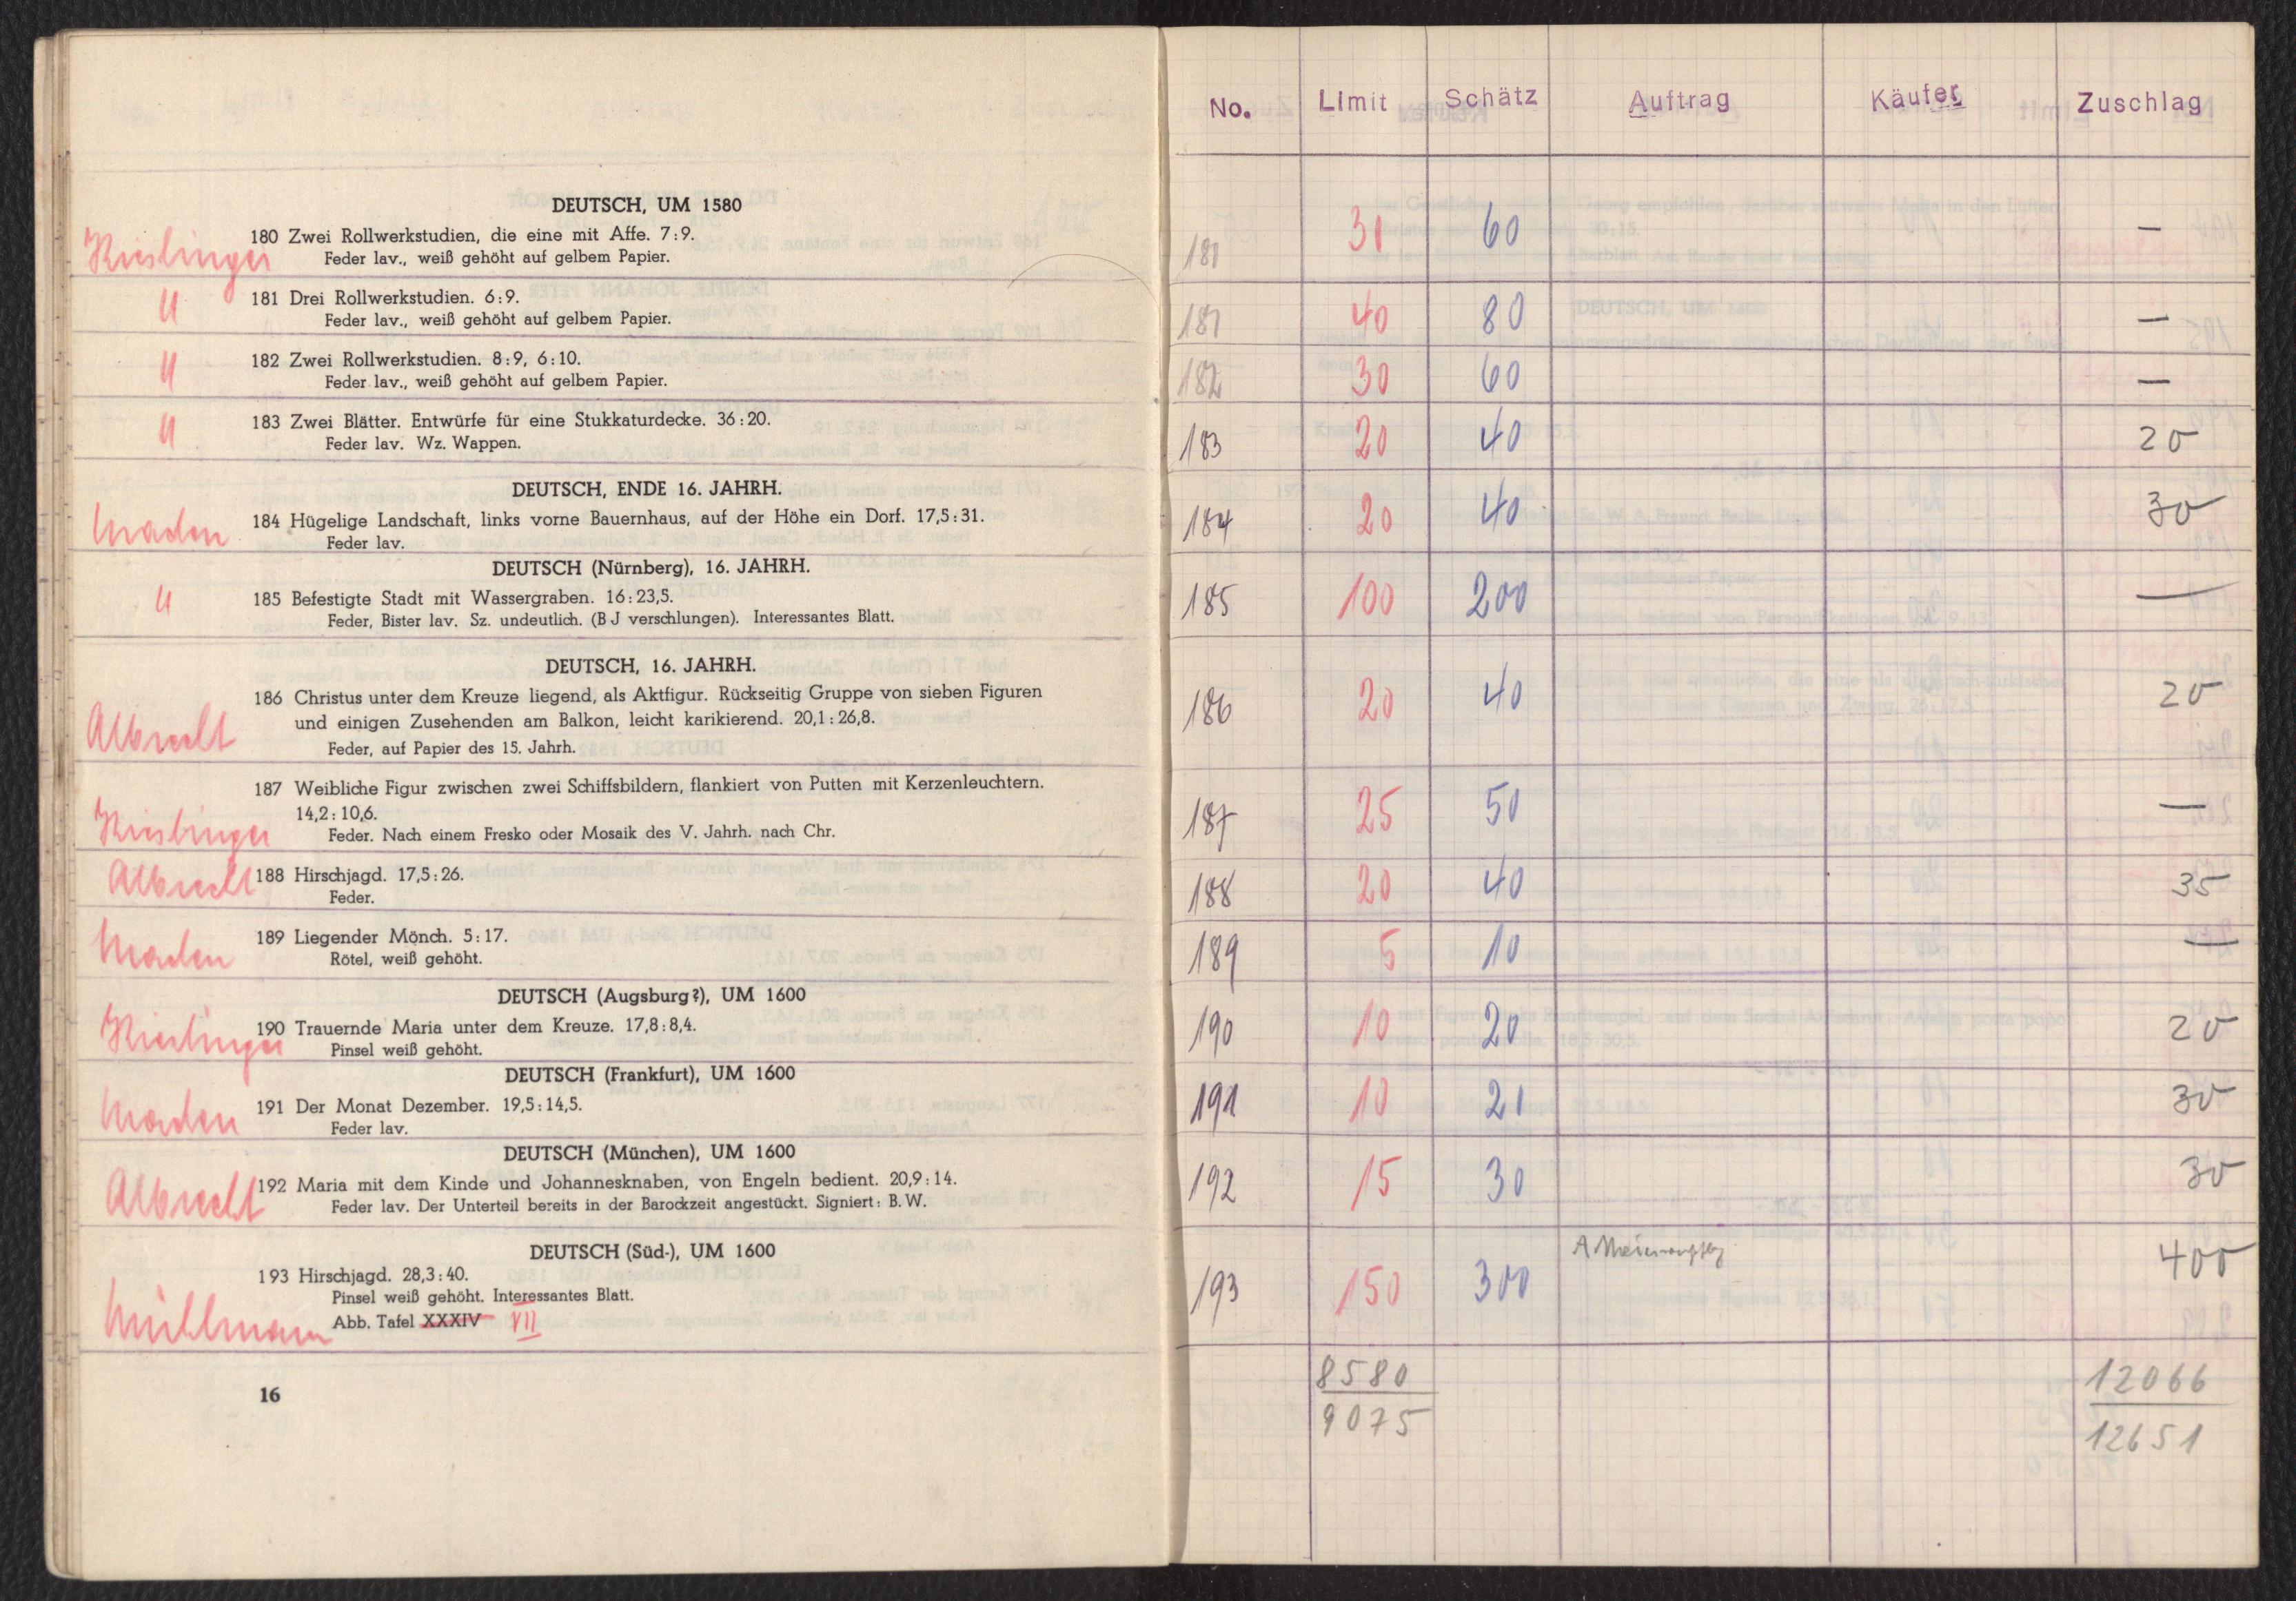 DEUTSCH, UM 1580
Kieslinger
180 Zwei Rollwerkstudien, die eine mit Affe. 7:9.
Feder lav., weiß gehöht auf gelbem Papier.
"
181 Drei Rollwerkstudien. 6:9.
Feder lav., weiß gehöht auf gelbem Papier.
"
182 Zwei Rollwerkstudien. 8:9, 6:10.
Feder lav., weiß gehöht auf gelbem Papier.
"
183 Zwei Blätter. Entwürfe für eine Stukkaturdecke. 36:20.
Feder lav. Wz. Wappen.
DEUTSCH, ENDE 16. JAHRH.
184 Hügelige Landschaft, links vorne Bauernhaus, auf der Höhe ein Dorf. 17,5:31.
Feder lav.
DEUTSCH (Nürnberg), 16. JAHRH.
"
185 Befestigte Stadt mit Wassergraben. 16:23,5.
Feder, Bister lav. Sz. undeutlich. (B J verschlungen). Interessantes Blatt.
DEUTSCH, 16. JAHRH.
186 Christus unter dem Kreuze liegend, als Aktfigur. Rückseitig Gruppe von sieben Figuren
und einigen Zusehenden am Balkon, leicht karikierend. 20,1:26,8.
Albrecht
Feder, auf Papier des 15. Jahrh.
187 Weibliche Figur zwischen zwei Schiffsbildern, flankiert von Putten mit Kerzenleuchtern.
14,2:10,6.
Kieslinger
Feder. Nach einem Fresko oder Mosaik des V. Jahrh. nach Chr.
Albrecht
188 Hirschjagd. 17,5:26.
Feder.
189 Liegender Mönch. 5:17.
Rötel, weiß gehöht.
DEUTSCH (Augsburg?), UM 1600
Kieslinger
190 Trauernde Maria unter dem Kreuze. 17,8:8,4.
Pinsel weiß gehöht.
DEUTSCH (Frankfurt), UM 1600
191 Der Monat Dezember. 19,5:14,5.
Feder lav.
DEUTSCH (München), UM 1600
Albrecht
192 Maria mit dem Kinde und Johannesknaben, von Engeln bedient. 20,9:14.
Feder lav. Der Unterteil bereits in der Barockzeit angestückt. Signiert: B. W.
DEUTSCH (Süd-), UM 1600
193 Hirschjagd. 28,3:40.
Pinsel weiß gehöht. Interessantes Blatt.
Mühlmann
Abb. Tafel XXXIV VII
16
No. Limit Schätz Auftrag Käufer Zuschlag
30 60 —
181 40 80 —
182 30 60 —
183 20 40 20
184 20 40 30
185 100 200 —
186 20 40 20
187 25 50 —
188 20 40 35
189 5 10 —
190 10 20 20
191 10 21 30
192 15 30 30
193 150 300 A 400
8580 12066
9075 12651